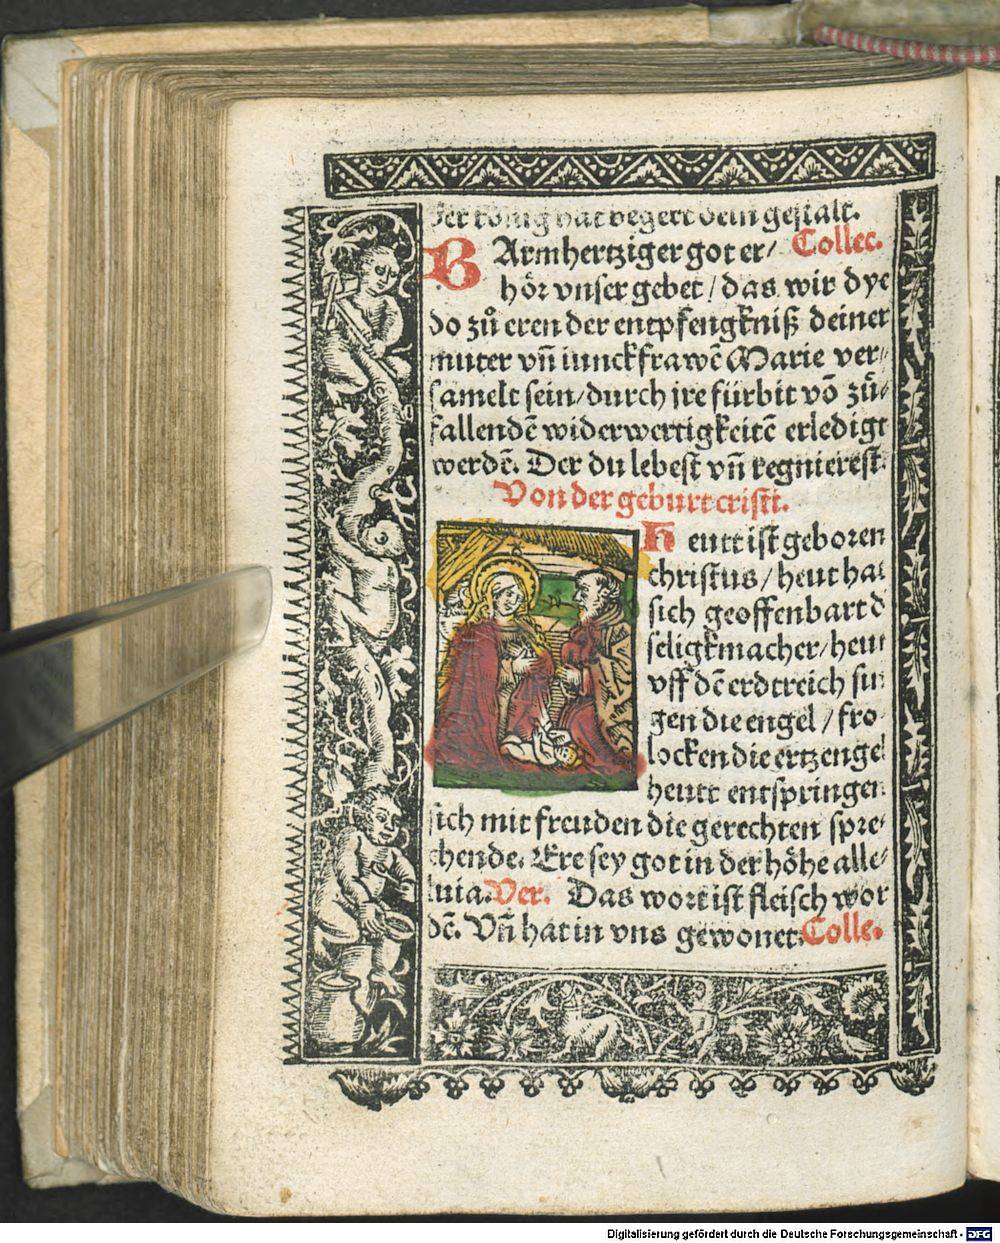 der könig hat begert dein gestalt.
BArmhertziger got er/ Collec.
hör vnser gebet / das wir dye
do zů eren der entpfengkniß deiner
muter vñ iunckfrawē Marie ver⸗
samelt sein/durch jre fürbit vō zů⸗
fallendē widerwertigkeitē erledigt
werdē. Der du lebest vñ regnierest.
Von der geburt cristi.
Heutt ist geboren
christus / heut hat
sich geoffenbart d
seligkmacher/heut
vff dē erdtreich sin
gen die engel / fro
locken die ertzengel
heutt entspringen
sich mit freuden die gerechten spre⸗
chende. Ere sey got in der höhe alle⸗
luia. Ver. Das wort ist fleisch wor
dē. Vñ hat in vns gewonet. Colle.
Digitalisierung gefördert durch die Deutsche Forschungsgemeinschaft - DFG